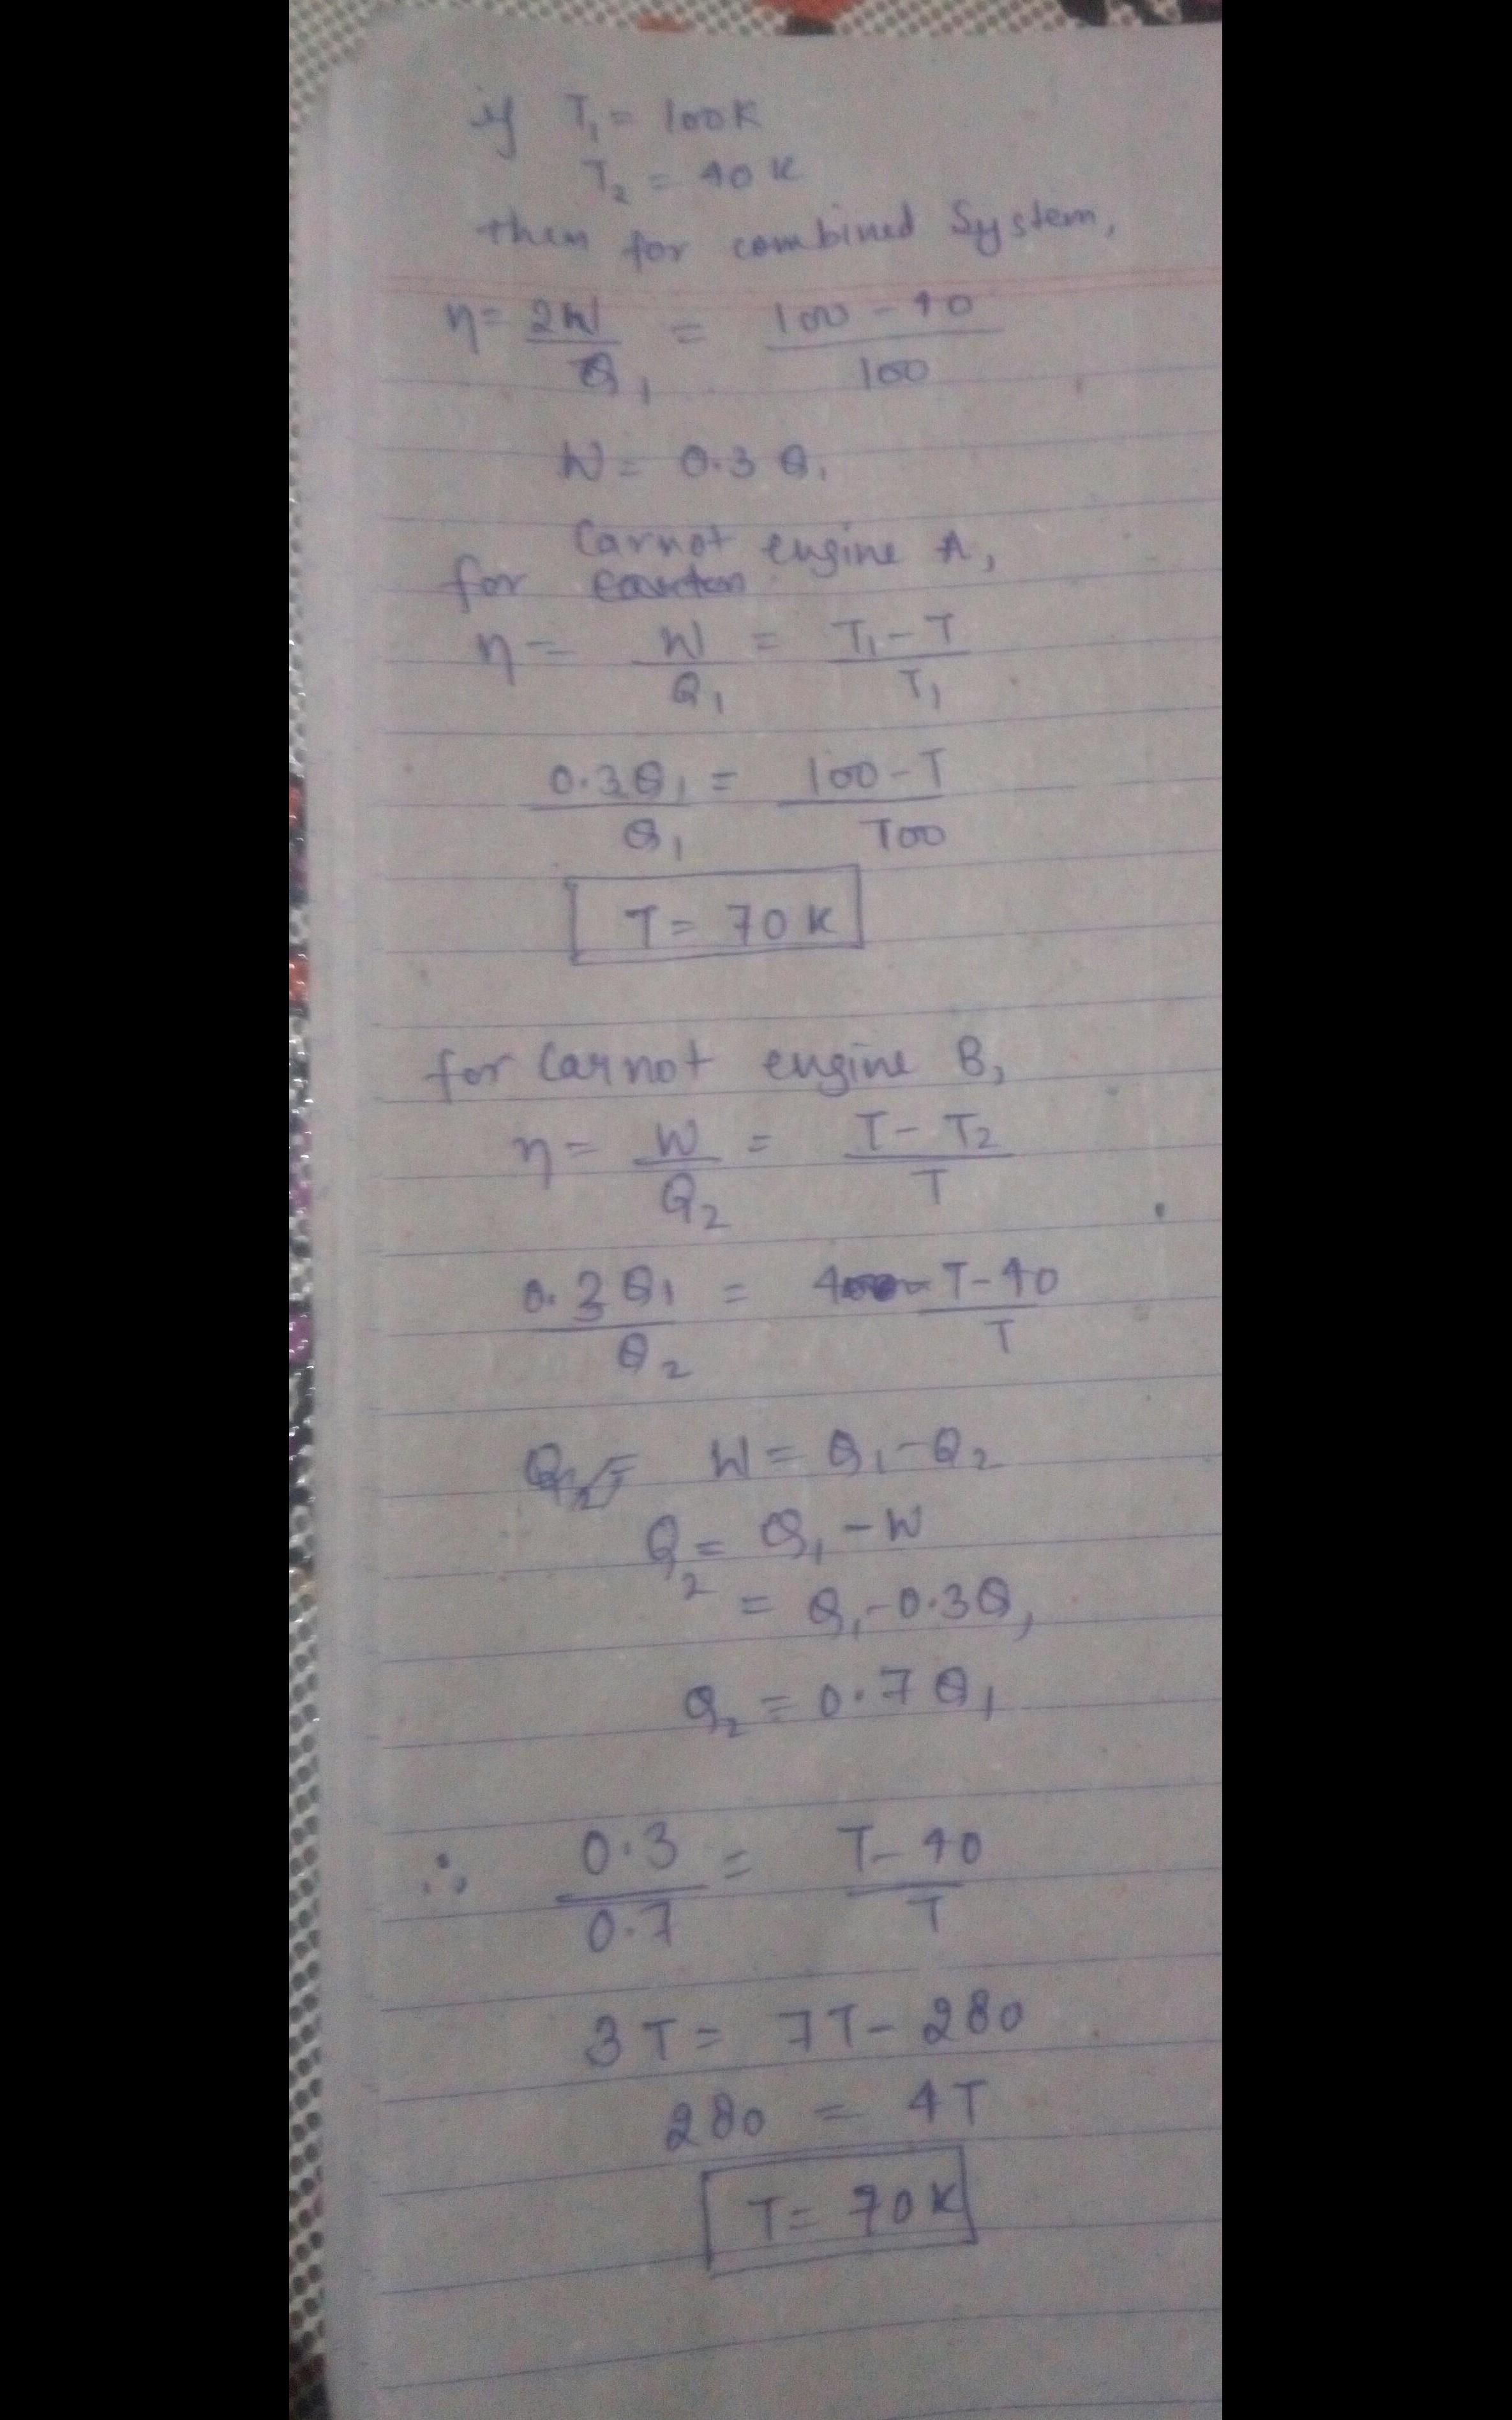 if T₁ = 100K
T₂ = 40 K
then for combined System,
η = 2W/Q₁ = 100 - 40/100
W = 0.3 Q₁
Carnot engine A,
for
η = W/Q₁ = T₁ - T/T₁
0.3Q₁/Q₁ = 100 - T/100
T = 70 K
for Carnot engine B,
η = W/Q₂ = T - T₂/T
0.3 Q₁/Q₂ = T - 40/T
W = Q₁ - Q₂
Q₂ = Q₁ - W
= Q₁ - 0.3Q₁
Q₂ = 0.7 Q₁
∴ 0.3/0.7 = T - 40/T
3T = 7T - 280
280 = 4T
T = 70K